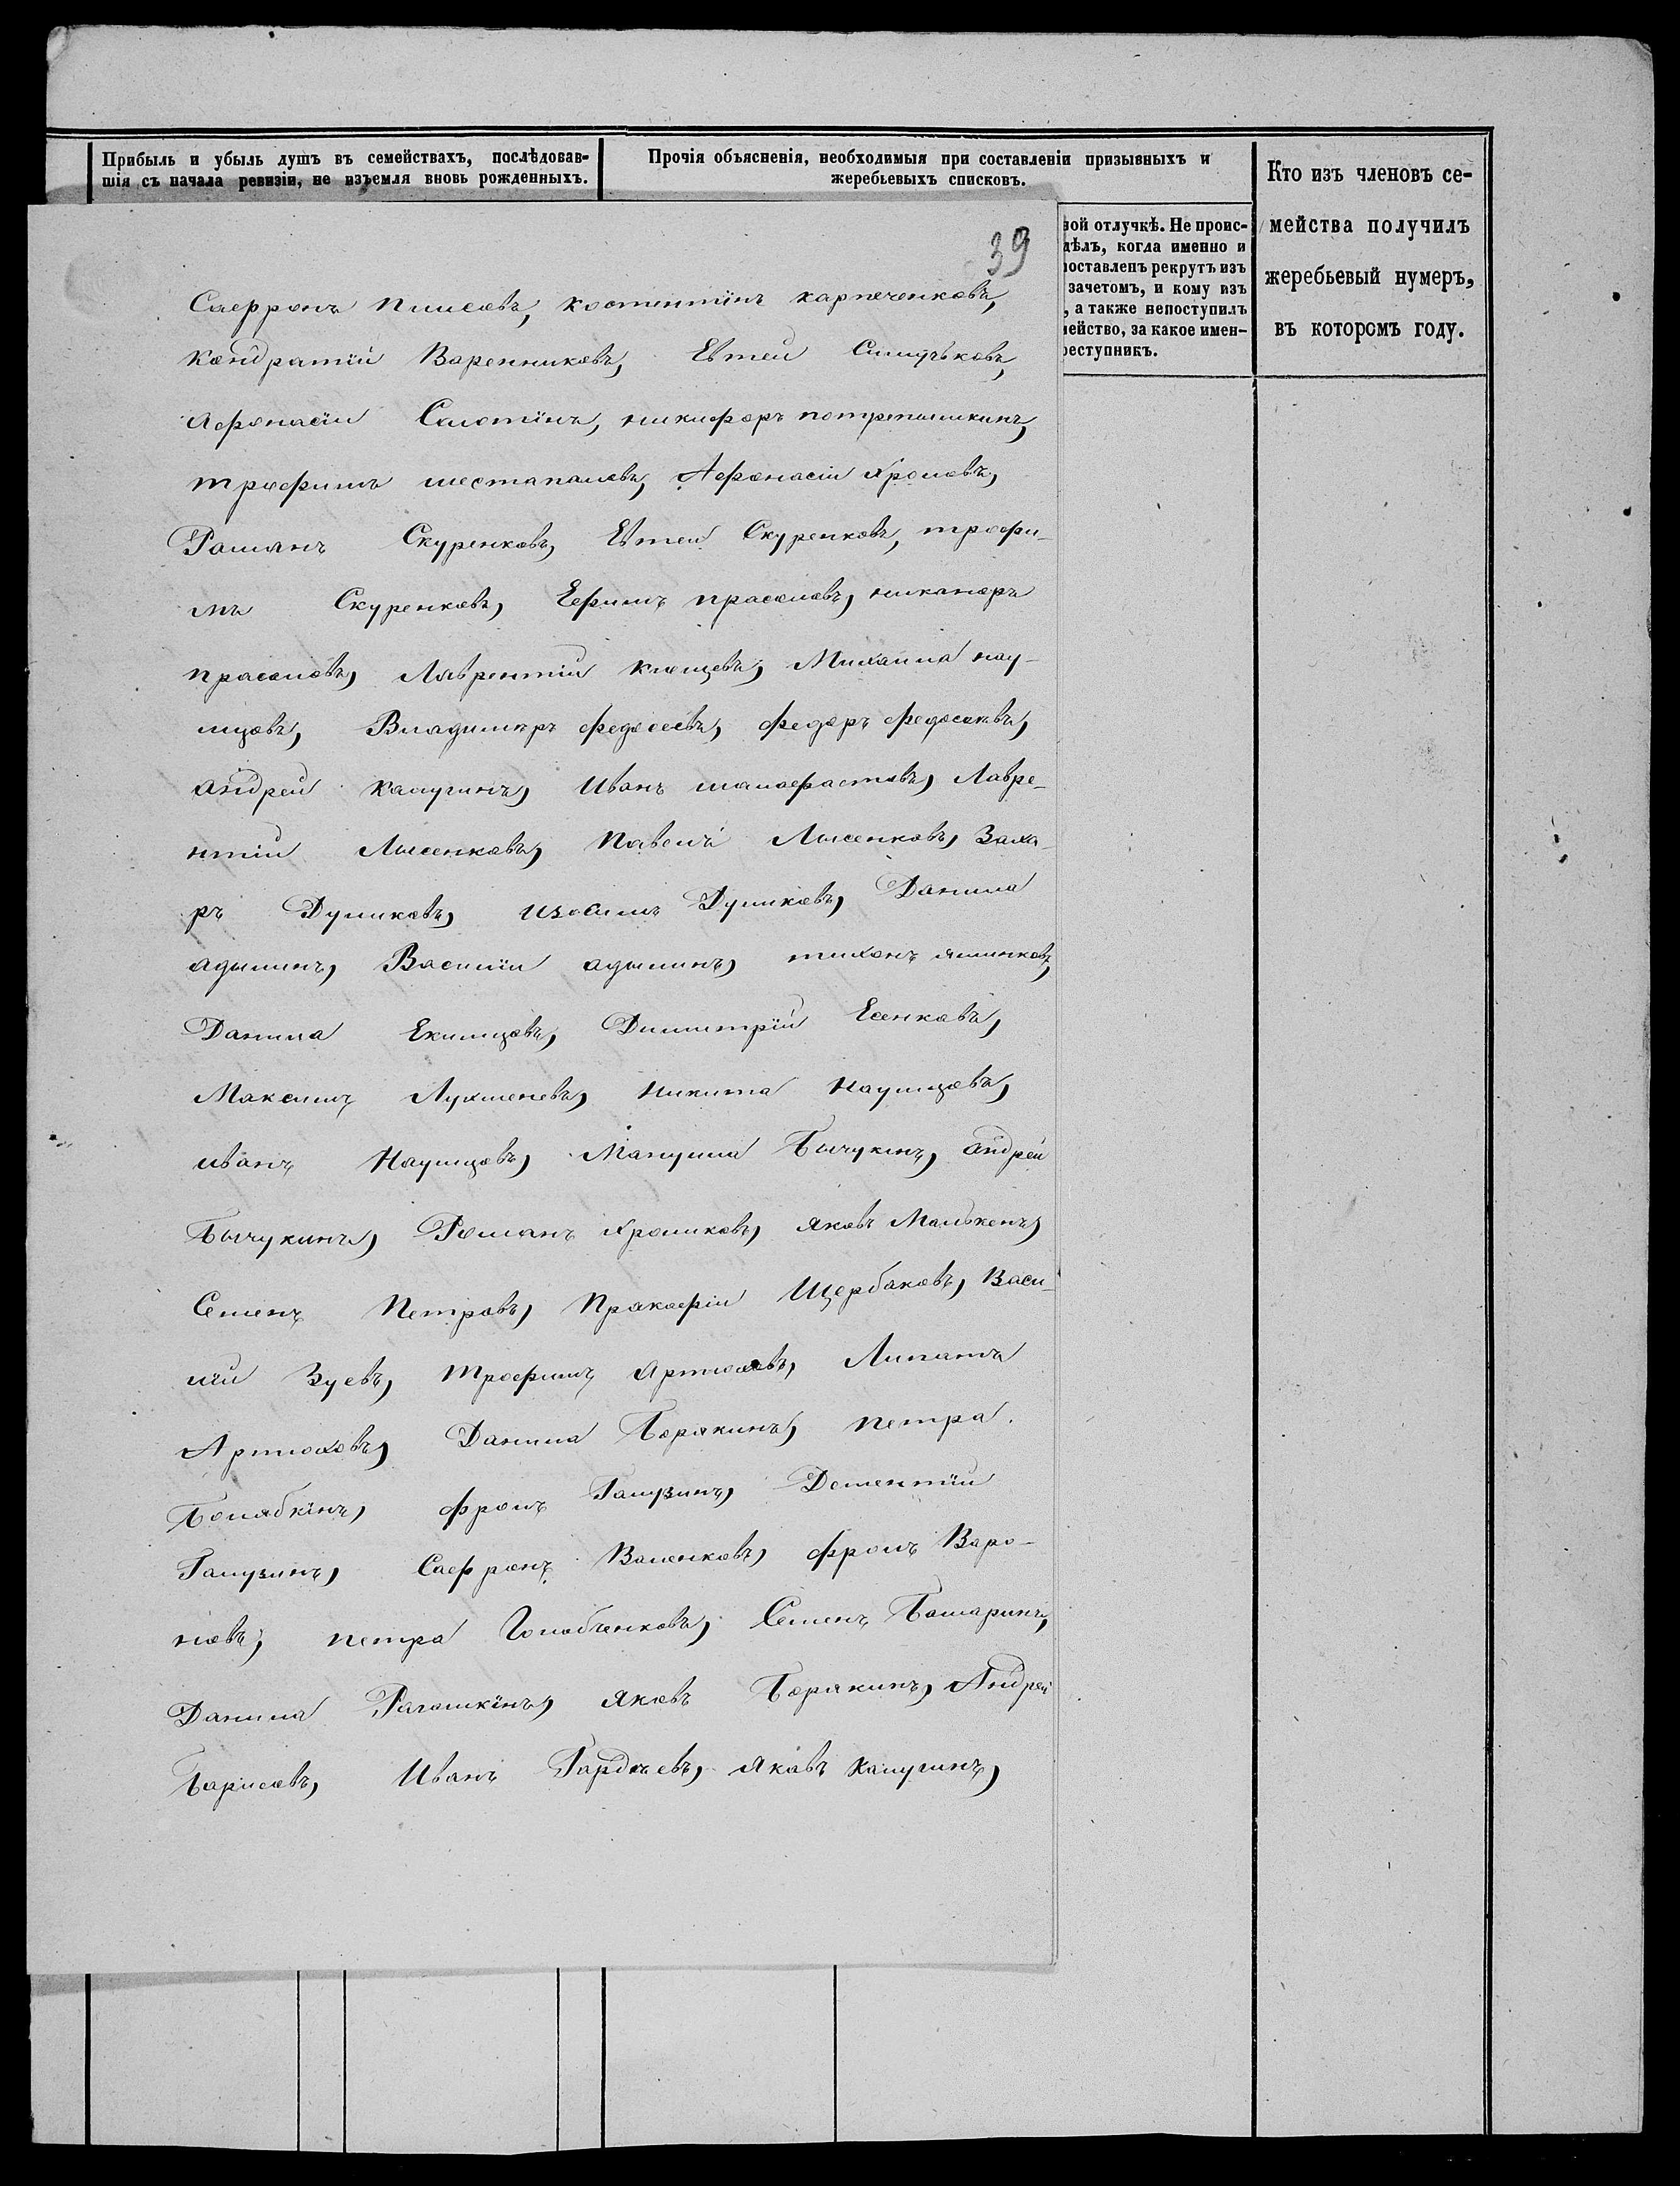 Прибыль и убыль душъ въ семействахъ, послѣдовав-
шія съ начала ревизіи, не изъемля вновь рожденныхъ.
Прочія объясненія, необходимыя при составленіи призывныхъ и
жеребьевыхъ списковъ.
Кто изъ членовъ се-
мейства получилъ
жеребьевый нумеръ,
въ которомъ году.
ной отлучкѣ. Не проис-
дѣлъ, когда именно и
поставленъ рекрутъ изъ
зачетомъ, и кому изъ
, а также непоступилъ
мейство, за какое имен-
реступникъ.
39
Саффронъ костентінъ карпеченковъ,
Кондратій Варенниковъ, Евтей
Афонасіи Салотінъ, никифоръ
трофимъ шестапаловъ, Афонасіи Хромовъ,
Раманъ Скуренковъ, Евтеи Скуренковъ, трофи-
мъ Скуренковъ, Ефимъ прасоловъ, никаноръ
прасоловъ, Лаврентіи клющевъ, Михаила нау-
мцовъ, Владимиръ федосеевъ, федоръ
андреи калугинъ, Иванъ Лавре-
нтіи Лысенковъ, Павелъ Лысенковъ, Заха-
ръ Думиковъ, изосимъ Думиковъ, Данила
адылинъ, Василіи адылинъ, тихонъ
Данила Екимцовъ, Димитріи Есенковъ,
Максимъ никита Наумцовъ,
иванъ Наумцовъ, Манушла Бычукинъ, андреи
Бычукинъ, Романъ Хромиковъ, яковъ
Семенъ Петровъ, Пракофіи Щербаковъ, Васи-
ліи Зуевъ, трофимъ Артюховъ, Липатъ
Артюховъ, Данила Борякинъ, петра
Болябкінъ, фролъ Галузинъ, Дементіи
Галузинъ, Саффронъ Воленковъ, фролъ Варо-
новъ, петра Голобченковъ, Семенъ Башаринъ,
Данила Рагошкінъ, яковъ Борякинъ, Андреи
Барисовъ, Иванъ Гардѣевъ, яковъ калугинъ,